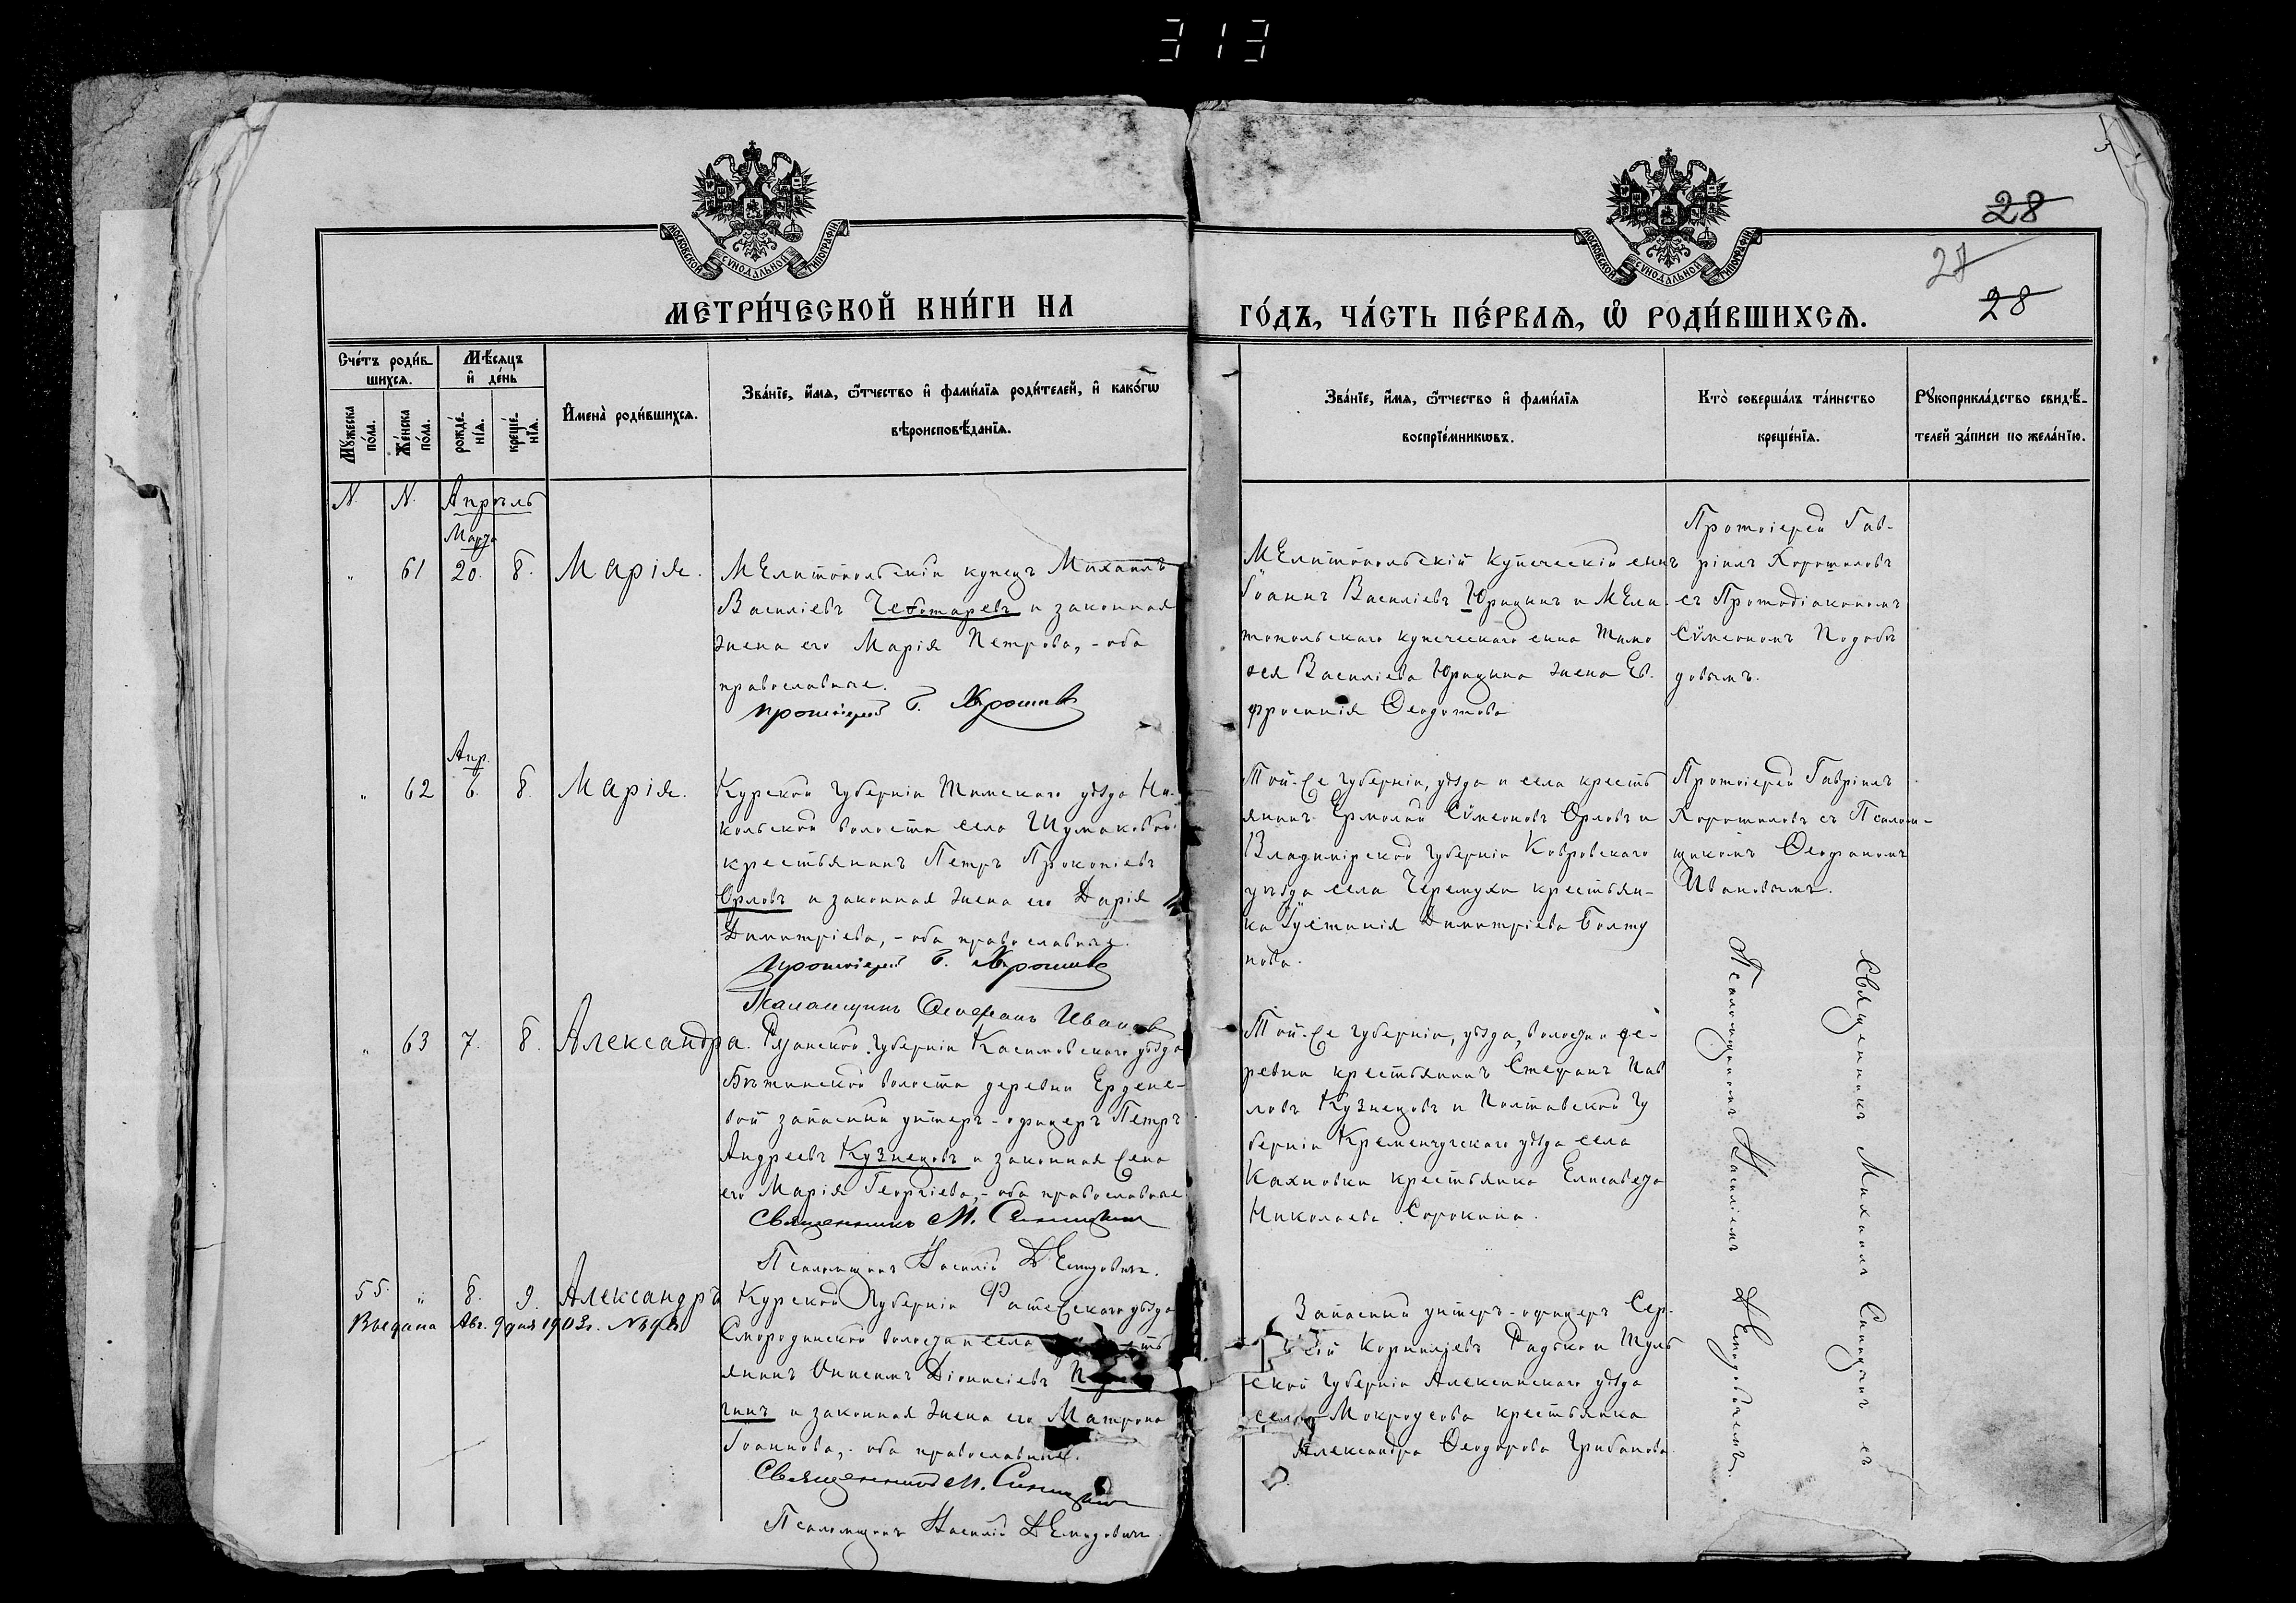 313
МОСКОВСКОЙ СѴНОДАЛЬНОЙ ТИПОГРАФІИ
МОСКОВСКОЙ СѴНОДАЛЬНОЙ ТИПОГРАФІИ
28
28
28
МЕТРИ́ЧЕСКОЙ КНИ́ГИ НА
ГО́ДЪ, ЧА́СТЬ ПЕ́РВАЯ, Ѡ РОДИ́ВШИХСЯ.
Сче́тъ роди́в-
шихся.
Мꙋжеска по́ла.
Же́нска по́ла.
Мѣ́сяцъ
и҆ де́нь
рожде́-
нїѧ.
креще́-
нїѧ.
И҆мена̀ роди́вшихся.
Зва́нїе, и҆́мѧ, ѻ҆́тчество и҆ фами́лїѧ роди́телей, и҆ како́гѡ
вѣроисповѣ́данїѧ.
Зва́нїе, и҆́мѧ, ѻ҆́тчество и҆ фами́лїѧ
воспрїе́мникѡвъ.
Кто̀ соверша́лъ та́инство
креще́нїѧ.
Рꙋкоприкла́дство свидѣ́-
телей за́писи по жела́нїю.
N. N. Апрѣль
Марта
" 61 20. 8. Марія.
Мелитопольскій купецъ Михаилъ
Василіевъ Чеботаревъ и законная
жена его Марія Петрова, - оба
православные.
протоіерей Г.
Мелитопольскій купеческій сынъ
Іоаннъ Василіевъ Юрицынъ и Мели
топольскаго купеческаго сына Тимо
ѳея Василіева Юрицына жена Ев.
фросинія Ѳеодотова
Протоіерей Гав-
ріилъ Хорошиловъ
съ Протодіакономъ
Сѵмеономъ
Апр.
" 62 6. 8. Марія.
Курской губерніи Тимскаго уѣзда Ни-
кольской волости села Шумаковой
крестьянинъ Петръ Прокопіевъ
Орловъ и законная жена его Дарія
Димитріева, - оба православные.
протоіерей Г.
Псаломщикъ Ѳеофанъ Ивановъ
Той-же губерніи, уѣзда и села кресть
янинъ Ермолай Сѵмеоновъ Орловъ и
Владимірской губерніи Ковровскаго
уѣзда села Черемухи крестьян-
ка Іустинія Димитріева Болту
нова.
Протоіерей Гавріилъ
Хорошиловъ съ Псалом-
щикомъ Ѳеофаномъ
Ивановымъ.
" 63 7. 8. Александра.
Рязанской губерніи Касимовскаго уѣзда
волости деревни Ердене-
вой запасный унтеръ-офицеръ Петръ
Андреевъ Кузнецовъ и законная жена
его Марія Георгіева, - оба православные
Священникъ М.
Псаломщикъ Василій
Той-же губерніи, уѣзда, волости и де-
ревни крестьянинъ Стефанъ Пав
ловъ Кузнецовъ и Полтавской гу
берніи Кременчугскаго уѣзда села
Кахновки крестьянка Елисавета
Николаева Сорокина.
Священникъ Михаилъ съ
Псаломщикомъ Василіемъ
55. " 8. 9. Александръ
Выдана Авг. 9 дня 1903 г. №
Курской губерніи Фатежскаго уѣзда
Смородинской волости и села
янинъ Онисимъ Діонисіевъ
и законная жена его Матрона
Іоаннова, - оба православные.
Священникъ М.
Псаломщикъ Василій
Запасный унтеръ-офицеръ Сер-
гій Корниліевъ Радько и Туль
ской губерніи Алексинскаго уѣзда
села крестьянка
Александра Ѳеодорова Грибанова